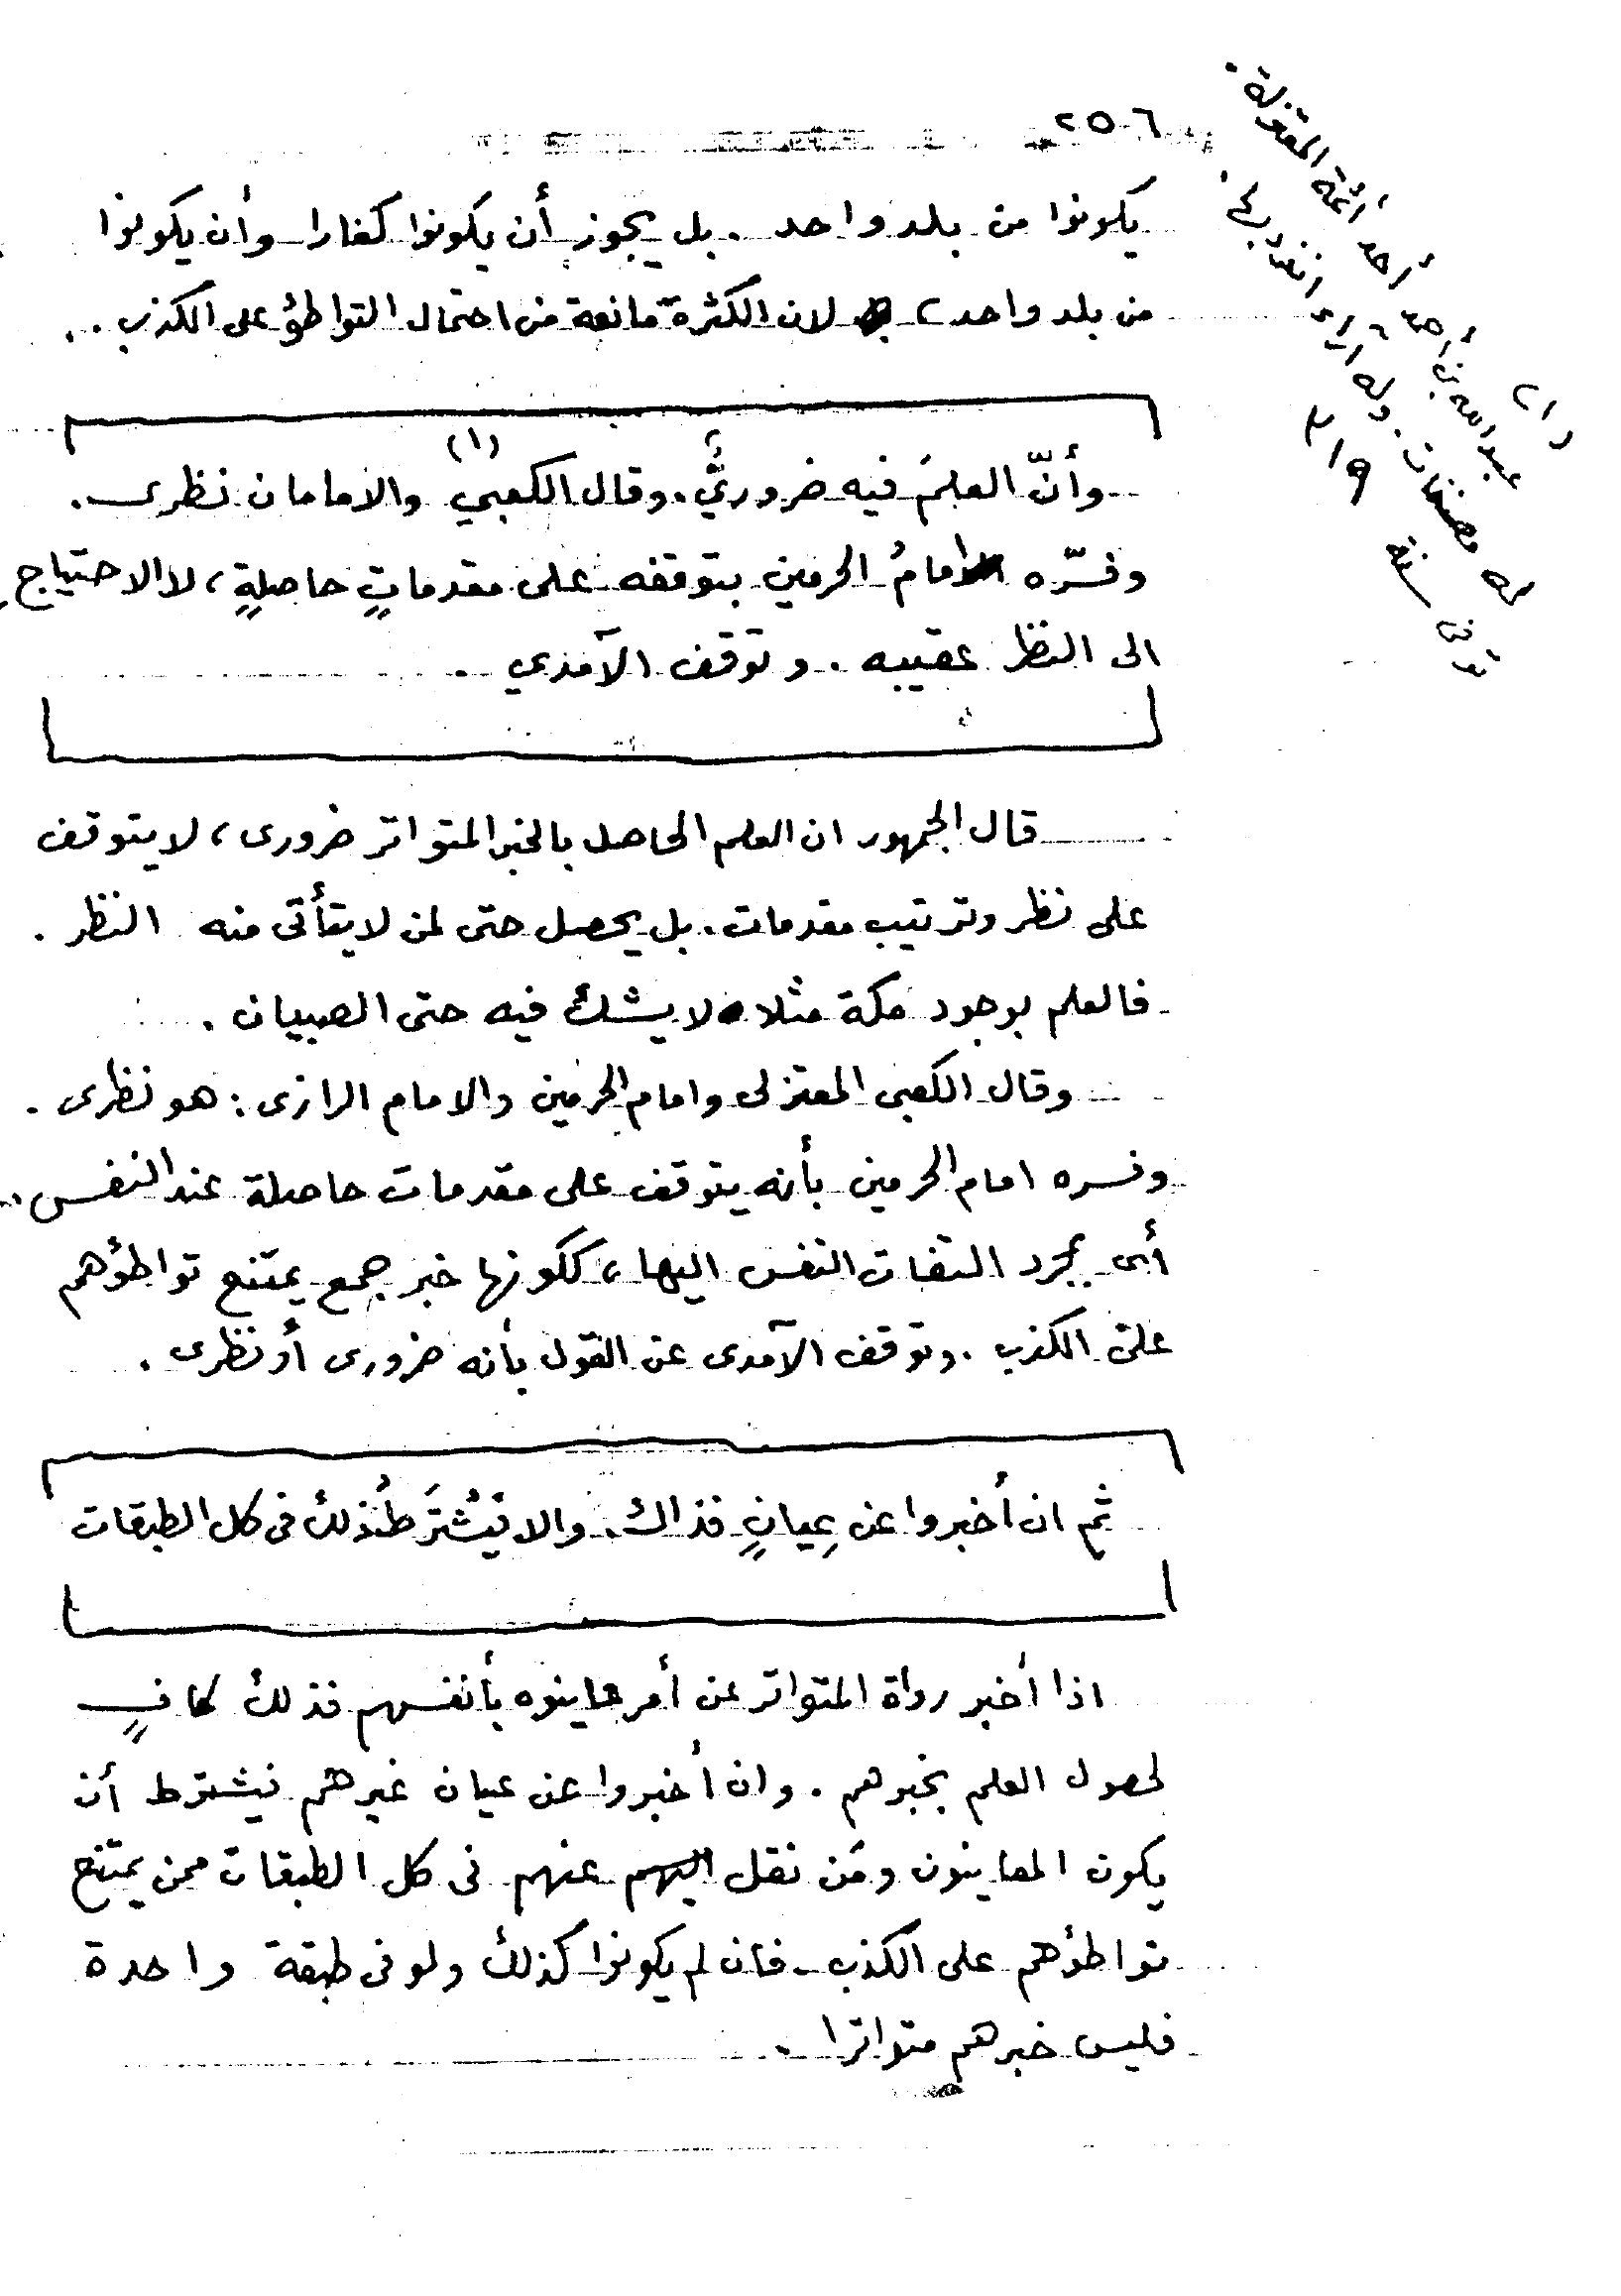 ٢٥٦
يكونوا من بلد واحد . بل يجوز أن يكونوا كفارا وأن يكونوا
من بلد واحد ، لان الكثرة مانعة من احتمال التواطؤ على الكذب .
وأنّ العلمَ فيه ضروريٌّ . وقال الكعبي (١) والامامان نظرى .
وفسّره امامُ الحرمين بتوقفه على مقدماتٍ حاصلةٍ ، لا الاحتياج
الى النظر عقيبه . وتوقف الآمدي .
قال الجمهور ان العلم الحاصل بالخبر المتواتر ضرورى ، لا يتوقف
على نظر وترتيب مقدمات . بل يحصل حتى لمن لا يتأتى منه النظر .
فالعلم بوجود مكة مثلا لا يشك فيه حتى الصبيان .
وقال الكعبى المعتزلى وامام الحرمين والامام الرازى : هو نظرى .
وفسره امام الحرمين بأنه يتوقف على مقدمات حاصلة عند النفس ،
أى بمجرد التفات النفس اليها ، ككونها خبر جمع يمتنع تواطؤهم
على الكذب . وتوقف الآمدى عن القول بأنه ضرورى أو نظرى .
ثم ان أخبروا عن عِيانٍ فذاك . والا فيُشترَطُ ذلك فى كل الطبقات
اذا أخبر رواة المتواتر عن أمر عاينوه بأنفسهم فذلك كافٍ
لحصول العلم بخبرهم . وان أخبروا عن عيان غيرهم فيشترط أن
يكون المعاينون ومَن نقل اليهم عنهم فى كل الطبقات ممن يمتنع
تواطؤهم على الكذب . فان لم يكونوا كذلك ولو فى طبقة واحدة
فليس خبرهم متواترا .
(١)
عبدالله بن أحمد أحد أئمة المعتزلة .
له مصنفات . وله آراء انفرد بها .
توفى سنة ٣١٩